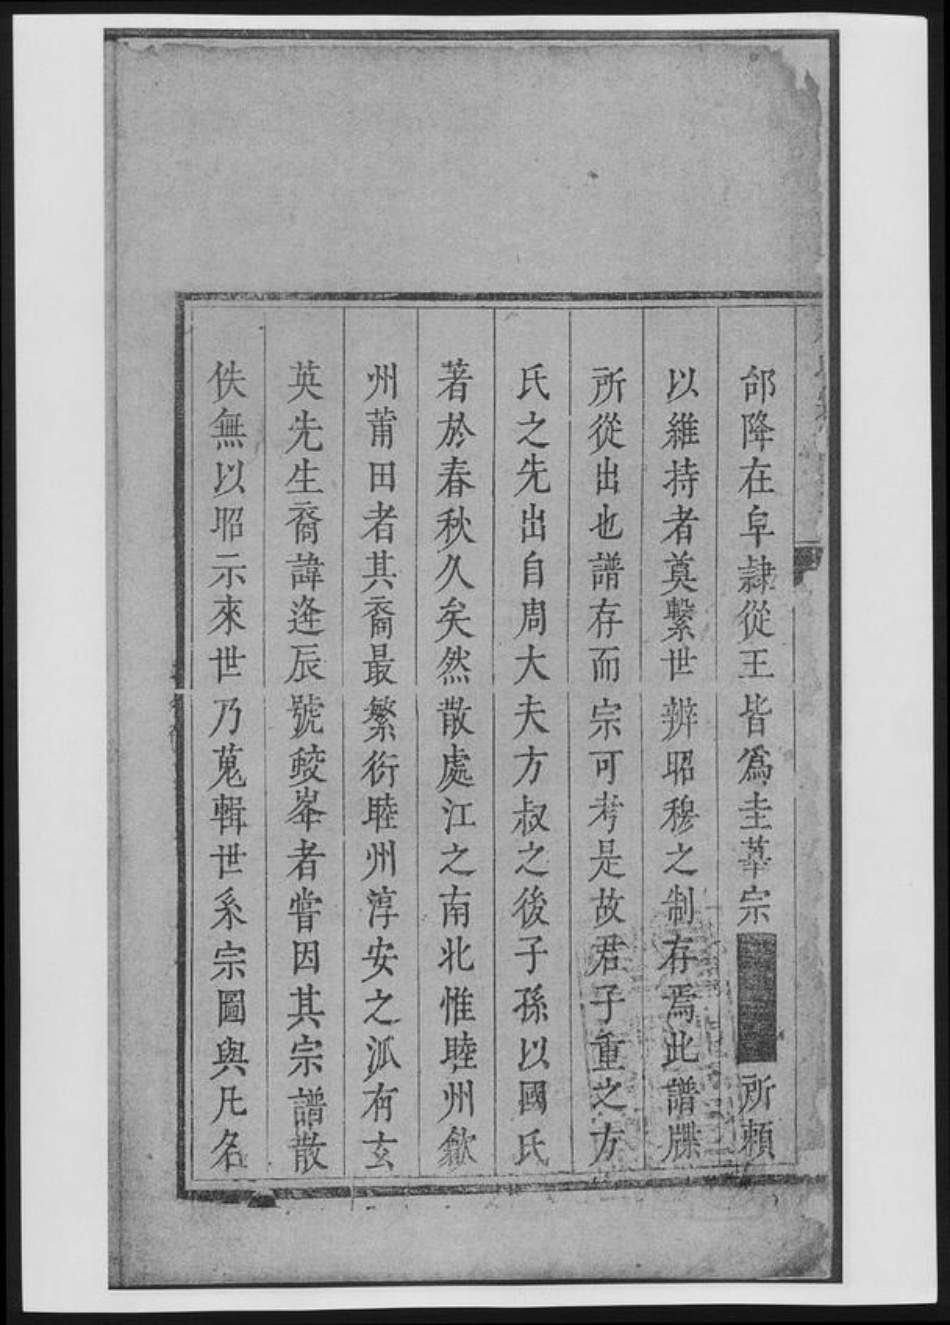 郃降在皁隸從王皆爲圭蓽宗所賴
以維持者奠繫世辨昭穆之制存焉此譜牒
所從出也譜存而宗可考是故君子重之方
氏之先出自周大夫方叔之後子孫以國氏
著於春秋久矣然散處江之南北惟睦州歙
州莆田者其裔最繁衍睦州淳安之派有玄
英先生裔諱逄辰號蛟峯者嘗因其宗譜散
佚無以昭示來世乃蒐輯世系宗圖與凡名